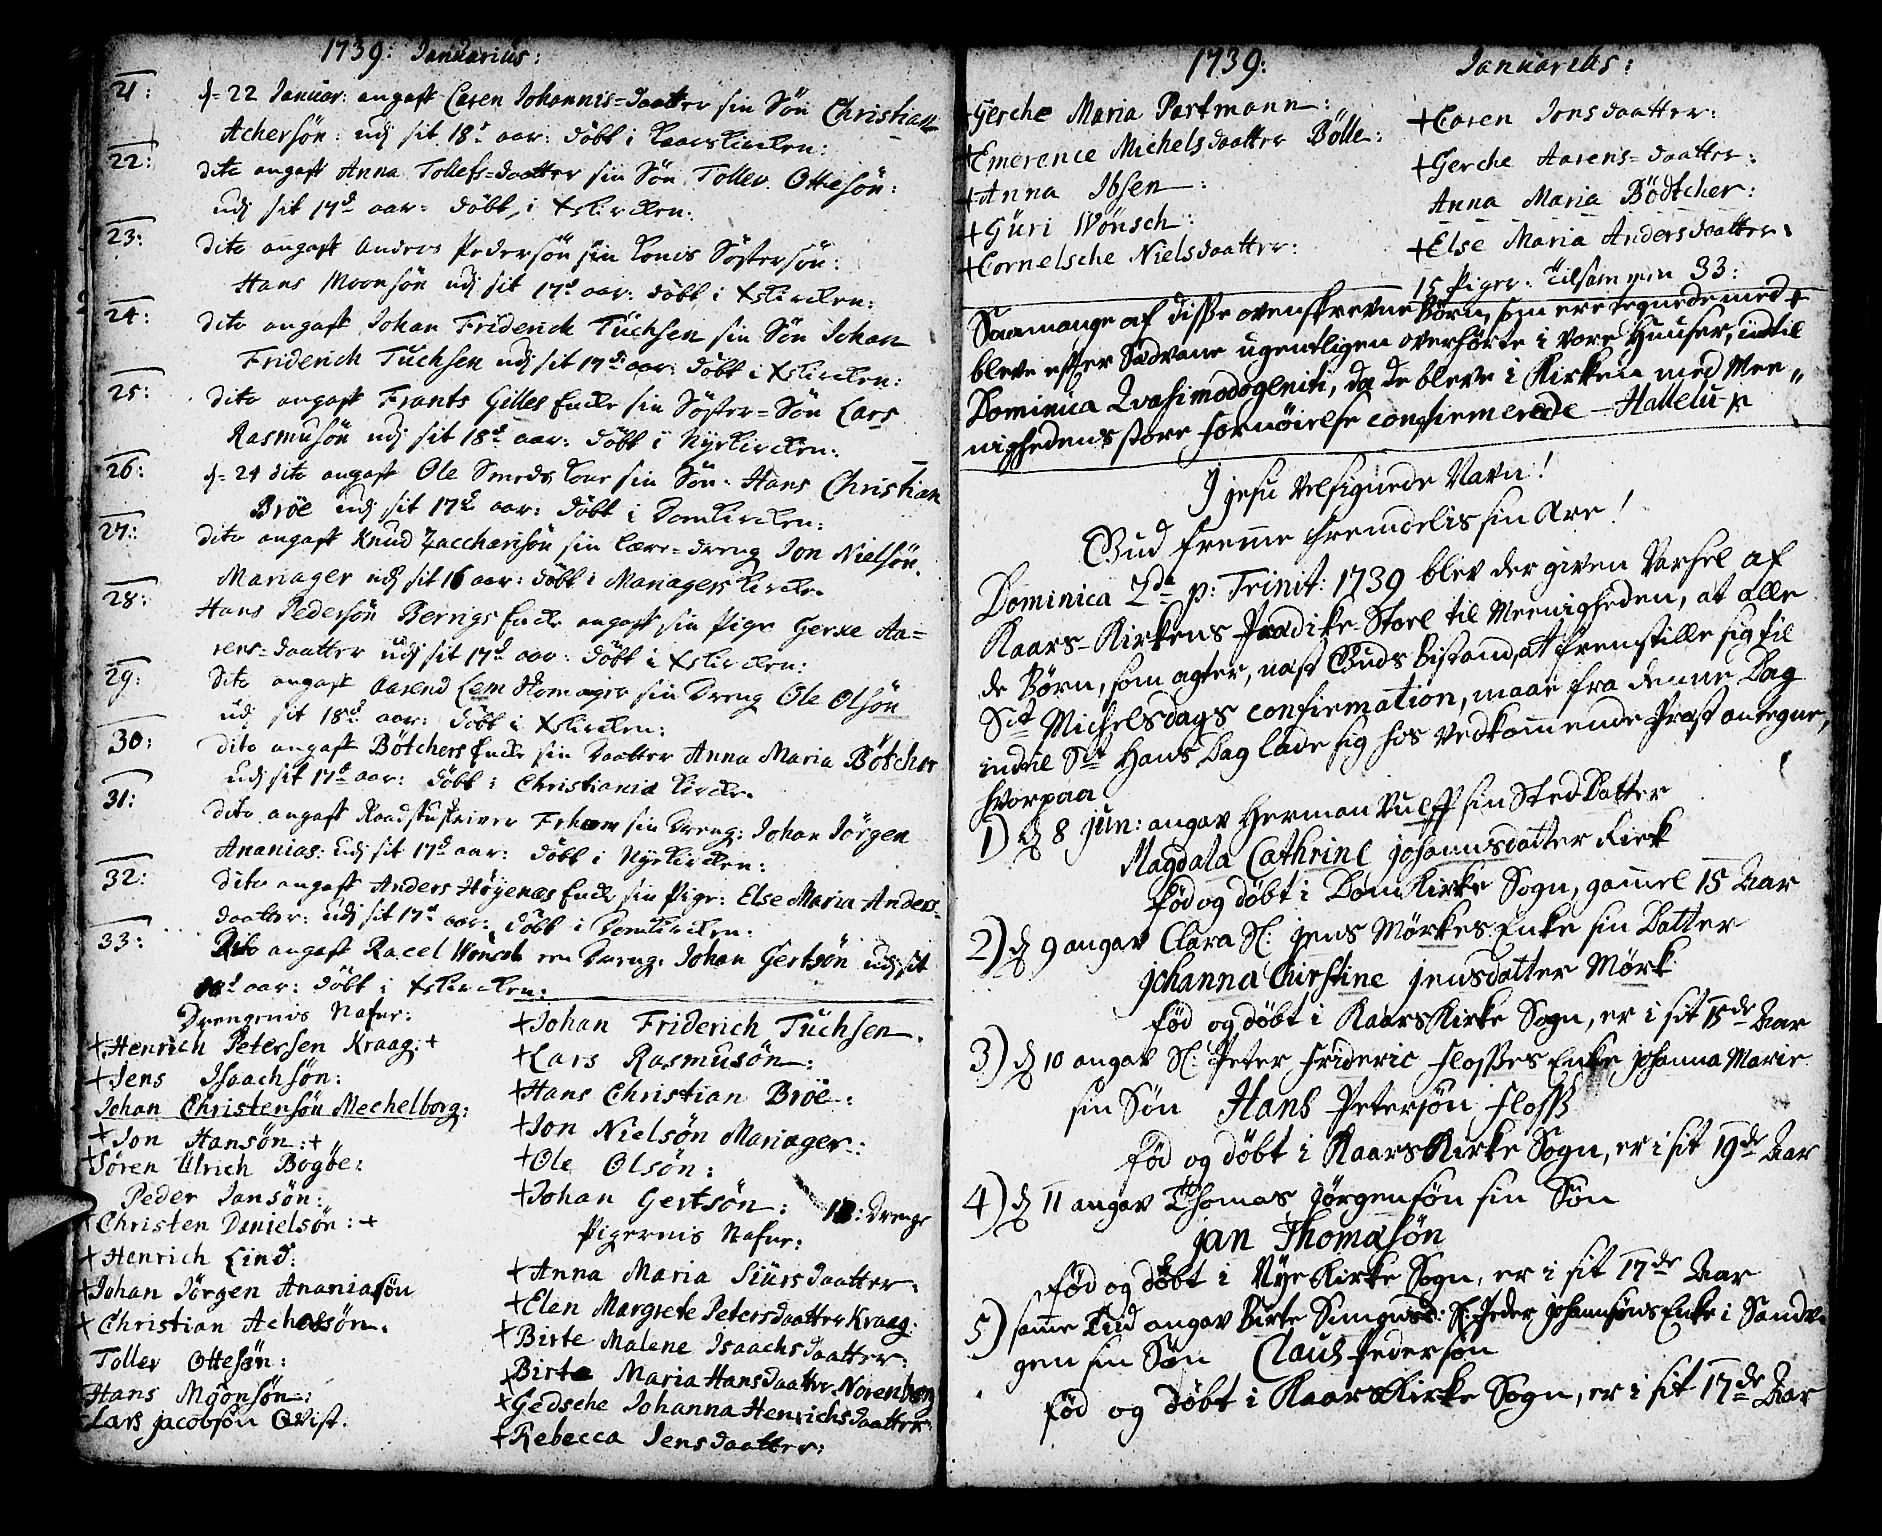 1739: Januarius:
21: d= 22 Januar: angaf Caren Johannis=daatter sin Sön Christian
Achersön: udj sit 18d aar: döbt i Kaarskircken:
22: dito angaf Anna Tollefs=daatter sin Sön Toller Ottesön:
udj sit 17d aar: döbt i Xkircken:
23: dito angaf Anders Pedersön sin Konis Söstersön:
Hans Moonsön udj sit 17d aar: döbt i Xkircken:
24: dito angaf Johan Friderich Tüchsen sin Sön Johan
Friderich Tüchsen udj sit 17d aar: döbt i Xkircken:
25: dito angaf Frants Gilles Encke sin Söster=Sön Lars
Rasmusön udj sit 18d aar: döbt i Nyekircken:
26: d= 24 dito angaf Ole Smeds Kone sin Sön: Hans Christian
Bröe udj sit 17d aar: döbt i Domkircken:
27: dito angaf Knud Zaccharisön sin Lære=dreng Jon Nielsön
Mariager udj sit 16 aar: döbt i Mariagers kircke
28: Hans Pedersön Bernigs Encke angaf sin Pige Gerxe Aa=
rens=daatter udj sit 17d aar: döbt i Xkircken:
29: dito angaf Aarend Lem Skomager sin Dreng Ole Olsön
udj sit 18d aar: döbt i Xkircken:
30: dito angaf Bötchers Encke sin Daatter Anna Maria Bötcher
udj sit 17d aar: döbt i Christiania kircke.
31: dito angaf Raadstuskriver sin Dreng: Johan Jörgen
Ananias: udj sit 17d aar: döbt i Nyekircken:
32: dito angaf Anders Höyenes Encke sin Pige: Else Maria Anders=
daatter: udj sit 17d aar: döbt i Domkircken:
33: Dito angaf Racel Wönsch en Dreng: Johan Gertsön udj sit
aar: döbt i Xkircken:
Drengenis Nafne:
+Henrich Petersen Kraag:+
+Jens Isaachsön:
Johan Christensön Mechelborg:
+Jon Hansön:+
+Sören Ulrich Bogöe:
Peder Jansön:
+Christen Danielsön:+
+Henrich Lind:
+Johan Jörgen Ananiasön
+Christian Achersön.
Toller Ottesön:
Hans Moonsön:
Lars Jacobsön Qvist.
+Johan Friderich Tüchsen.
+Lars Rasmusön:
+Hans Christian Bröe:
+Jon Nielsön Mariager:
+Ole Olsön:
+Johan Gertsön: 18: Drenge
Pigernis Nafne:
+Anna Maria Siürsdaatter:
+Elen Margrete Petersdaatter Kraag:
+Birte Malene Isaachsdaatter:
+Birte Maria Hansdaatter Norenberg
+Gedsche Johanna Henrichsdaatter
+Rebecca Jensdaatter:
1739: Januarius:
+Gerche Maria Partmann:
+Emerence Michelsdaatter Bölle:
+Anna Ibsen:
+Güri Wönsch:
+Cornelsche Nielsdaatter:
+Caren Jonsdaatter:
+Gerche Aarens=daatter:
Anna Maria Bödtcher:
+Else Maria Andersdaatter.
15 Piger. Tilsammen 33:
Saamange af disse ovenskrevne Börn, som ere tegnede med +
bleve efter Sædvane ugentligen overhörte i vore Huuser, indtil
Dominica Qvasimodogeniti, da de bleve i Kirken med Mee=
nighedens store fornöielse confirmerede – Hallelu-ja
I Jesu velsignede Navn!
Gud fremme fremdelis sin Ære!
Dominica 2da p: Trinit: 1739 blev der given Varsel af
Kaars-Kirkens Prædike-Stoel til Meenigheden, at alle
de Börn, som agter, næst Guds Bistand, at fremstille sig til
Sct Michelsdags confirmation, maae fra denne Dag
indtil Sct Hans Dag lade sig hos vedkommende Præst antegne,
hvorpaa
1) d 8 Jun: angav Herman Wulff sin StedDatter
Magdala Cathrine Johannsdatter Kirk
föd og döbt i Dom Kirke Sogn, gammel 15 Aar
2) d 9 angav Clara Sl: Jens Mörkes Enke sin Datter
Johanna Christine Jensdatter Mörk
föd og döbt i KaarsKirke Sogn, er i sit 15de Aar
3) d 10 angav Sl: Peter Frideric Flosses Enke Johanna Marie
sin Sön Hans Petersön Floss
föd og döbt i KaarsKirke Sogn, er i sit 19de Aar
4) d 11 angav Thomas Jörgensön sin Sön
Jan Thomasön
föd og döbt i Nye Kirke Sogn, er i sit 17de Aar
5) samme Tiid angav Birte Sl: Peder Johannsöns Enke i Sandvi
gen sin Sön Claus Pedersön
föd og döbt i KaarsKirke Sogn, er i sit 17de Aar